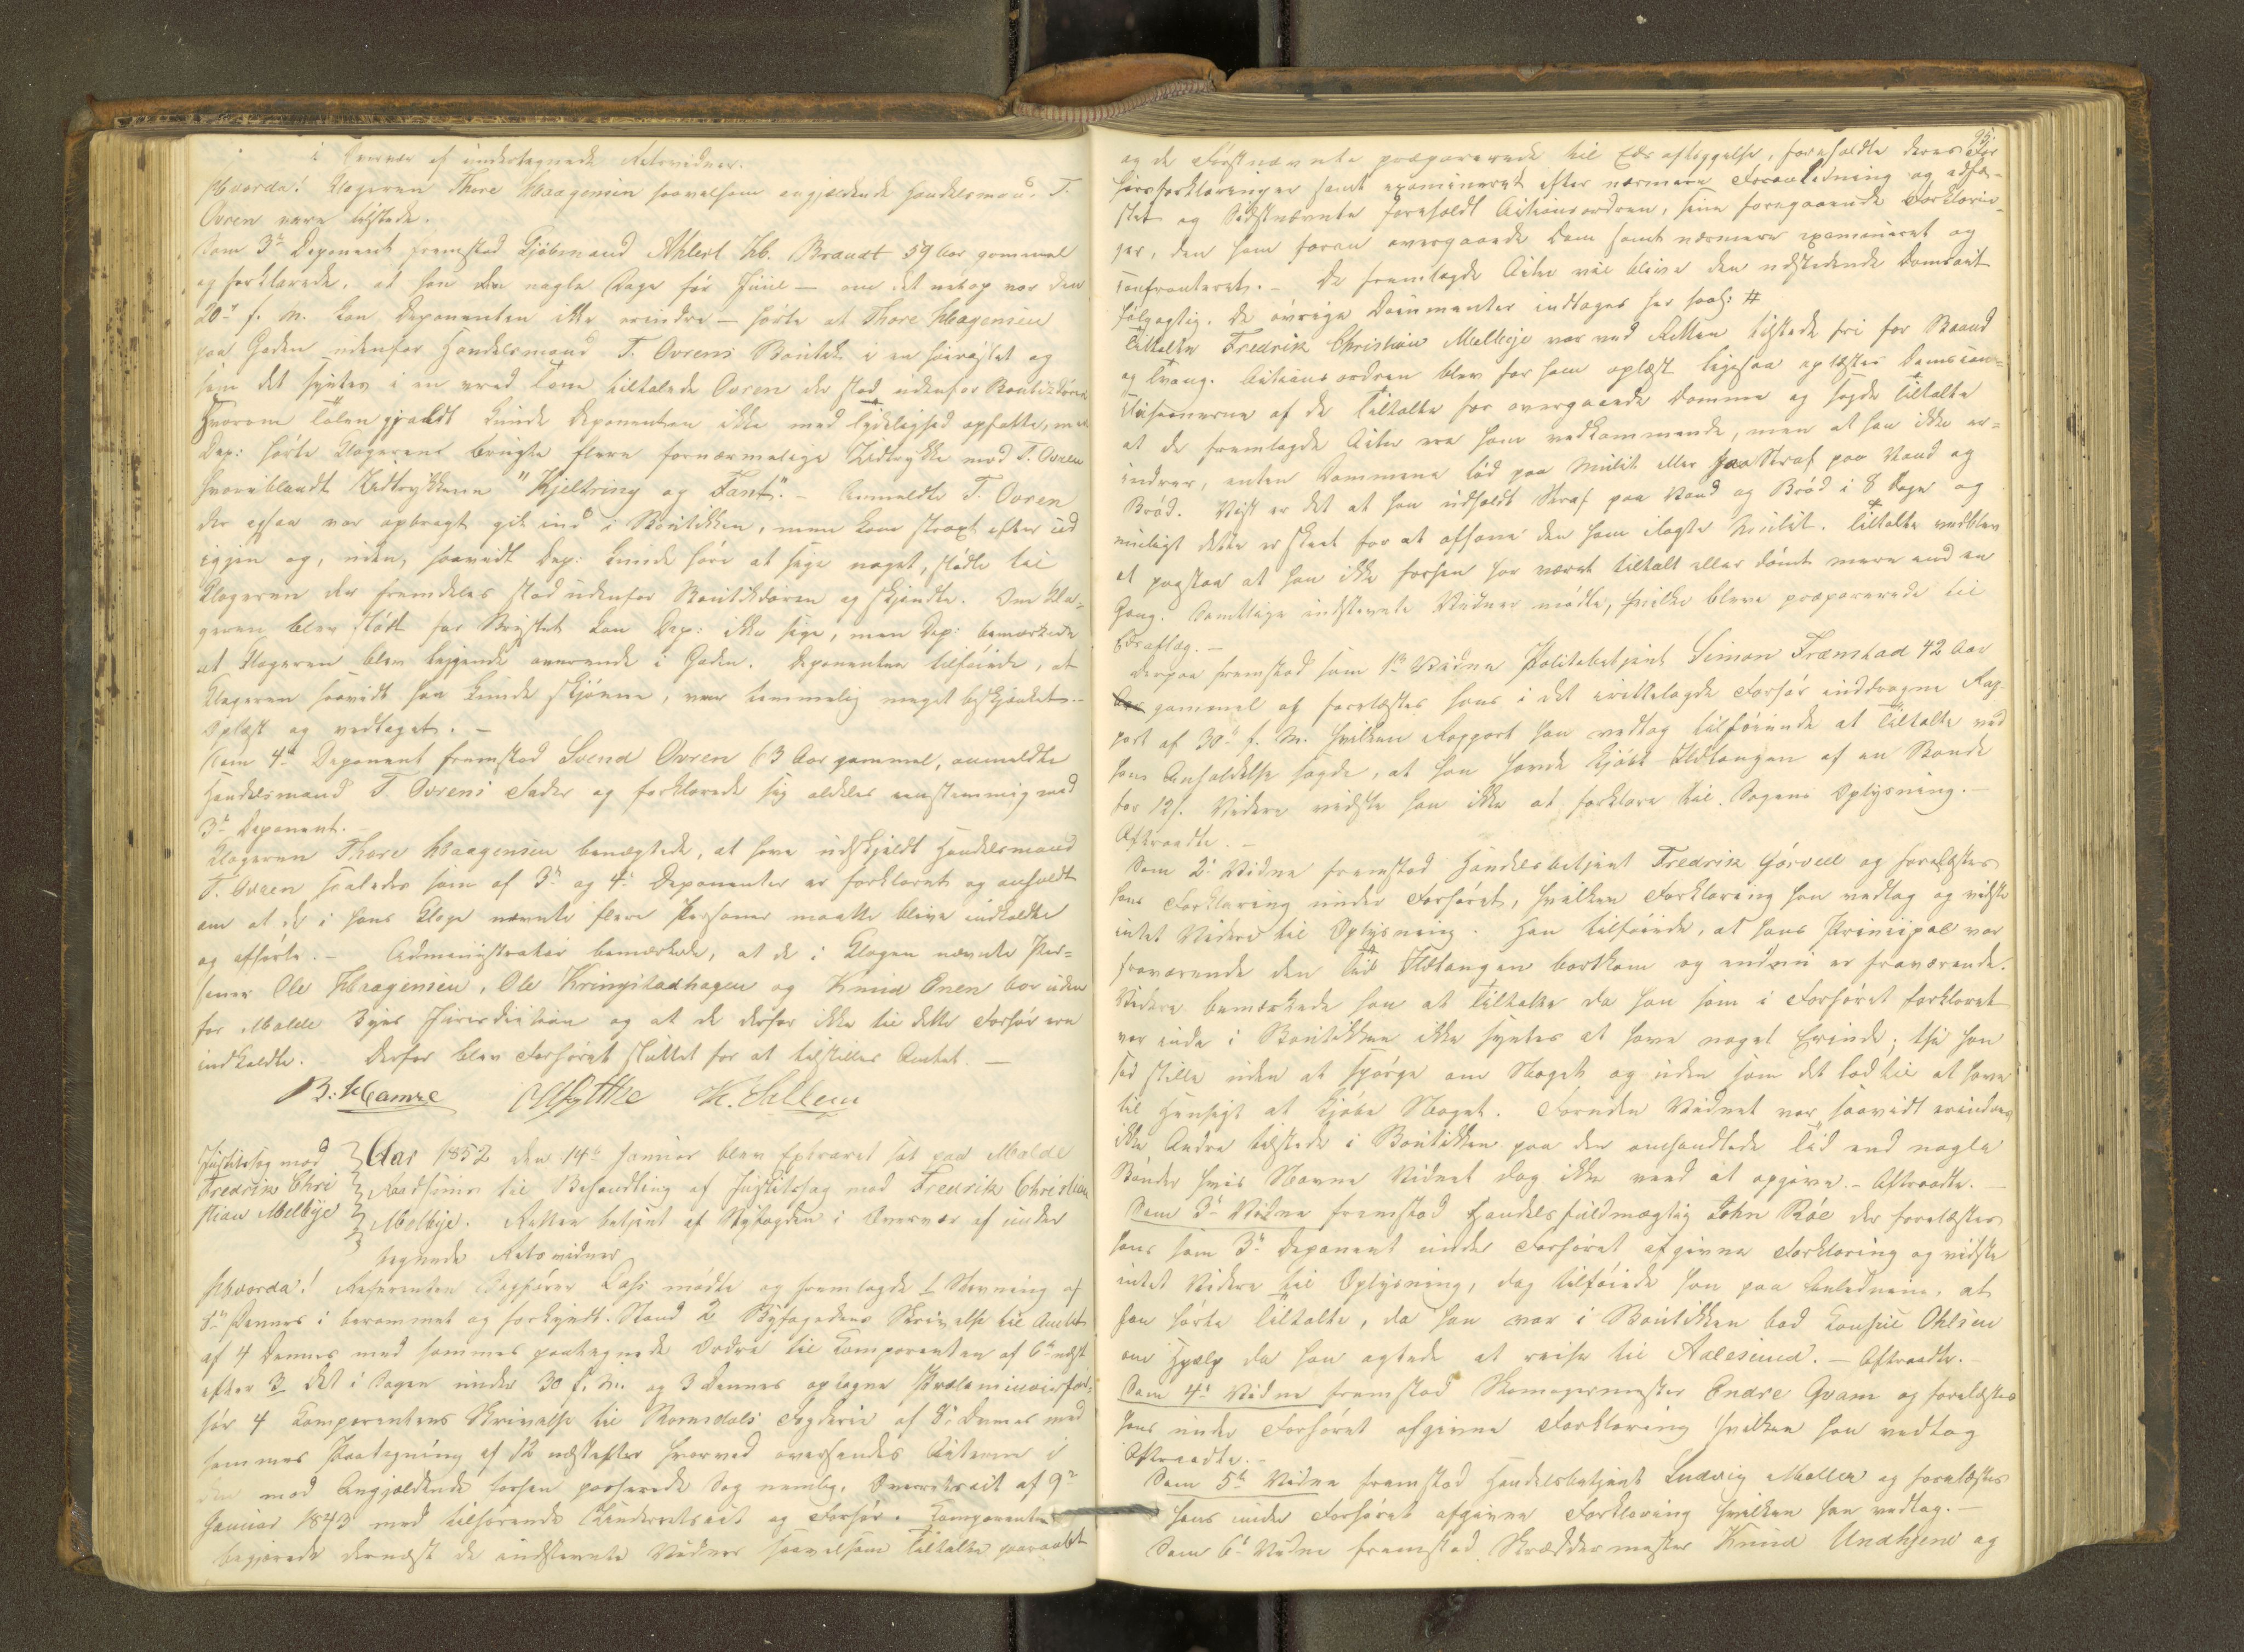 i Overvær af undertegnede Retsvidner.
Hvorda! Klageren Thore Haagensen saavelsom angjældende Handelsmand T.
Ovren vare tilstede.
Som 3die Deponent fremstod Kjöbmand Ahlert Hb. Brandt 59 Aar gammel
og forklarede, at han en nogle Dage før Juul — om det netop var den
20de f. M. kan Deponenten ikke erindre — hørte at Thore Haagensen
paa Gaden udenfor Handelsmand T. Ovrens Boutik i en høirøstet og
som det syntes i en vred Tone tiltalede Ovren der stod udenfor Boutikdøren
Hvorom Talen gjaldt kunde Deponenten ikke med Tydelighed opfatte, men
Dep: hørte Klageren bruge flere fornærmelige Udtrykke mod T. Ovren
hvoriblandt Udtrykkene "Kjeltring og Fant". – Anmeldte T. Ovren
der ogsaa var opbragt gik ind i Boutikken, men kom straxt efter ud
igjen og, uden, saavidt Dep: kunde høre at sige noget, stødte til
Klageren der fremdeles stod udenfor Boutikdøren og skjendte. Om Kla-
geren blev stødt for Brystet kan Dep: ikke sige, men Dep: bemærkede
at Klageren blev liggende overende i Gaden. Deponenten tilføiede, at
Klageren saavidt han kunde skjønne, var temmelig meget beskjænket. –
Oplæst og vedtaget. –
Som 4de Deponent fremstod Svend Ovren 63 Aar gammel, anmeldte
Handelsmand T Ovrens Fader og forklarede sig aldeles eenstemmig med
3die Deponent. –
Klageren Thore Haagensen benægtede, at have udskjeldt Handelsmand
T. Ovren saaledes som af 3die og 4de Deponenter er forklaret og anholdt
om at de i hans Klage nævnte flere Personer maatte blive indkaldte
og afhørte. – Administrator bemærkede, at de i Klagen nævnte Per-
soner Ole Haagensen, Ole Kringstadhagen og Knud Enen bor uden
for Molde Byes Jurisdiction og at de derfor ikke til dette Forhør ere
indkaldte. – Derfor blev Forhøret sluttet for at tilstilles Amtet. –
B. Hamre K. Sallem
Justitssag mod
Fredrik Chri
stian Melbye
Aar 1852 den 14de Januar blev Extraret sat paa Molde
Raadhuus til Behandling af Justitssag mod Fredrik Christian
Melbye. Retten betjent af Byfogden i Overvær af under
tegnede Retsvidner
Hvorda! Referenten Sagfører mødte og fremlagde 1 Stevning af
8de Dennes i berammet og forkyndt Stand 2 Byfogedens Skrivelse til Amtet
af 4 Dennes med sammes paategnede Ordre til Komparenten af 6te næst
efter 3 det i Sagen under 30 f. M. og 3 Dennes optagne Præleminairfor-
hør 4 Komparentens Skrivelse til Romsdals Fogderie af 8de Dennes med
sammes Paategning af 12 næstefter hvorved oversendes Acterne i
den mod Angjældende forhen passerede Sag nemlig, Overretsact af 9de
Januar 1843 med tilhørende Underretsact og Forhør. Komparenten
begjerede dernæst de indstevnte Vidner saavelsom Tiltalte paaraabt
95.
og de Førstnævnte præparerede til Eds aflæggelse, foreholdte deres For
hørsforklaringer samt examineret efter nærmere Foranledning og edfæ-
stet og Sidstnævnte foreholdt Actionsordren, sine foregaaende Forklarin-
ger, den ham foran overgaaede Dom samt nærmere examineret og
confronteret. – De fremlagde Acter vil blive den udstedende Domsact
følgagtig. De øvrige Documenter indtages her saal: #
Tiltalte Fredrik Christian Melbye var ved Retten tilstede fri for Baand
og Tvang. Actionsordren blev for ham oplæst ligesaa oplæstes Domscon-
clusionerne af de Tiltalte før overgaaede Domme og sagde Tiltalte
at de fremlagde Acter ere ham vedkommende, men at han ikke er-
indrer, enten Dommene lød paa Mulct eller paa Straf paa Vand og
Brød. Vist er det at han udholdt Straf paa Vand og Brød i 8 Dage og
muligt dette er skeet for at afsone den ham ilagte Mulct. Tiltalte vedblev
at paastaa at han ikke forhen har været tiltalt eller dømt mere end en
Gang. Samtlige indstevnte Vidner mødte, hvilke bleve præparerede til
Edsaflæg. –
Derpaa fremstod som 1ste Vidne Politibetjent Simon Fræmstad 42 Aar
gammel og forelæstes hans i det irettelagde Forhør inddragne Rap-
port af 30te f. M. hvilken Rapport han vedtog tilføiende at Tiltalte ved
hans Anholdelse sagde, at han havde kjøbt Uldtangen af en Bonde
for 12 s. Videre vidste han ikke at forklare til Sagens Oplysning. –
Aftraadte. –
Som 2det Vidne fremstod Handelsbetjent Fredrik Gørvell og forelæstes
hans Forklaring under Forhøret, hvilken Forklaring han vedtog og vidste
intet Videre til Oplysning. Han tilføiede, at hans Principal var
fraværende den Tid bortkom og endnu er fraværende.
Videre bemærkede han at Tiltalte da han som i Forhøret forklaret
var inde i Boutikken ikke syntes at have noget Erinde; thi han
sad stille uden at spørge om Noget og uden som det lod til at have
til Hensigt at kjøbe Noget. Foruden Vidnet var saavidt erindres
ikke Andre tilstede i Boutikken paa den omhandlede Tid end nogle
Bønder hvis Navne Vidnet dog ikke veed at opgive. – Aftraadte. –
Som 3die Vidne fremstod Handelsfuldmægtig John Röe der forelæstes
hans som 3die Deponent under Forhøret afgivne Forklaring og vidste
intet Videre til Oplysning, dog tilføiede han paa Anledning, at
han hørte Tiltalte, da han var i Boutikken bad Konsul Ohlsen
om Hjælp da han agtede at reise til Aalesund. – Aftraadte. –
Som 4de Vidne fremstod Skomagermester Endre Qvam og forelæstes
hans under Forhøret afgivne Forklaring hvilken han vedtog
Aftraadte. –
Som 5te Vidne fremstod Handelsbetjent Ludvig Møller og forelæstes
hans under Forhøret afgivne Forklaring hvilken han vedtog. –
Som 6te Vidne fremstod Skræddermester Knud Undhjem og